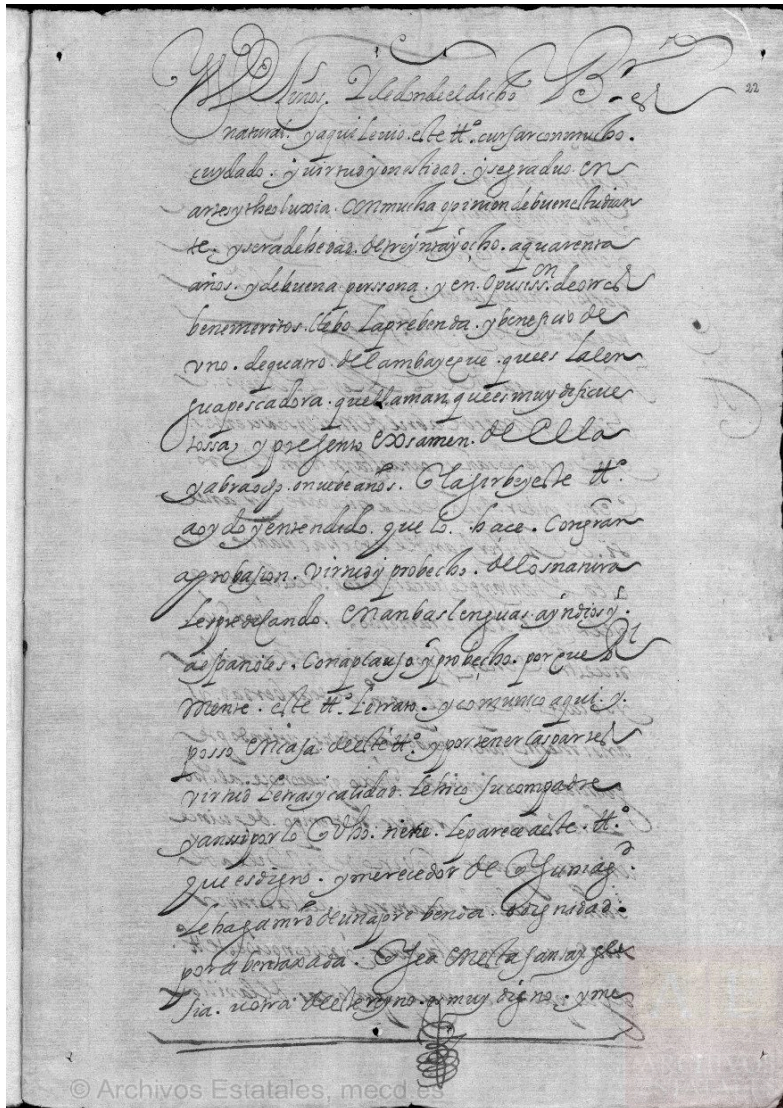 22
años. Y de donde el dicho Br es
natural. y aqui le uio. este tt.º cursar con mucho.
cuydado. y uirtud y onestidad. y se graduo en
artes y theoluxia. con mucha opinion de buen estudian
te. y sera de hedad. de treynta y ocho. a quarenta
años. y de buena perssona. y en opusiss.on de otros
benemeritos. llebo la prebenda. y beneficio de
vno. de quatro. de lambayeque. que es la len
gua pescadora. que llaman, que es muy dificul
tossa, y presento exsamen. de ella
y abra onse años. la sirbe y este tt.º
a oydo y entendido. que lo. hace. con gran
aprobasion. virtud y probecho. de los natura
les predicando. en anbas lenguas. a yndios y.
a españoles. con aplauso y probecho. porque
mente. este tt.º le trato. y comunico aqui. y.
posso en casa. de este tt.º y por tener las partes
virtud letras y calidad. le hico su compadre
y ansi por lo dho. tiene. le parece a este. tt.º
que es digno. y merecedor de su mag.d
le haga mrd de una prebenda. o dignidad.
por abentaxada. sea en esta santa ygle
sia. u otra. de este reyno. muy digno. y me
© Archivos Estatales, mecd.es